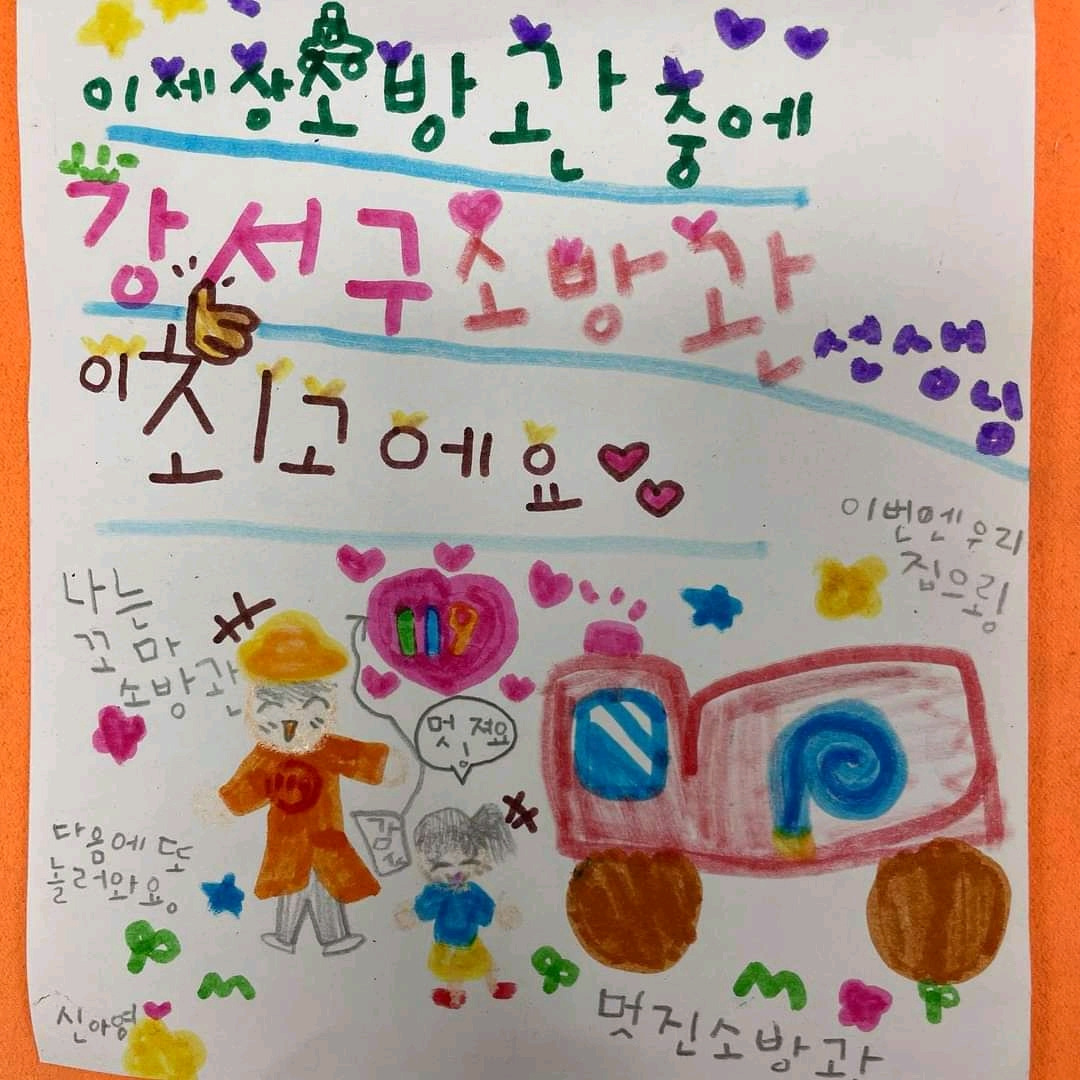 이세상소방관중에
강서구소방관
선생님
이최고에요
이번엔우리
집으롱
나는
꼬마
소방관
119
멋져요
다음에또
놀러와요.
신아영
멋진소방관